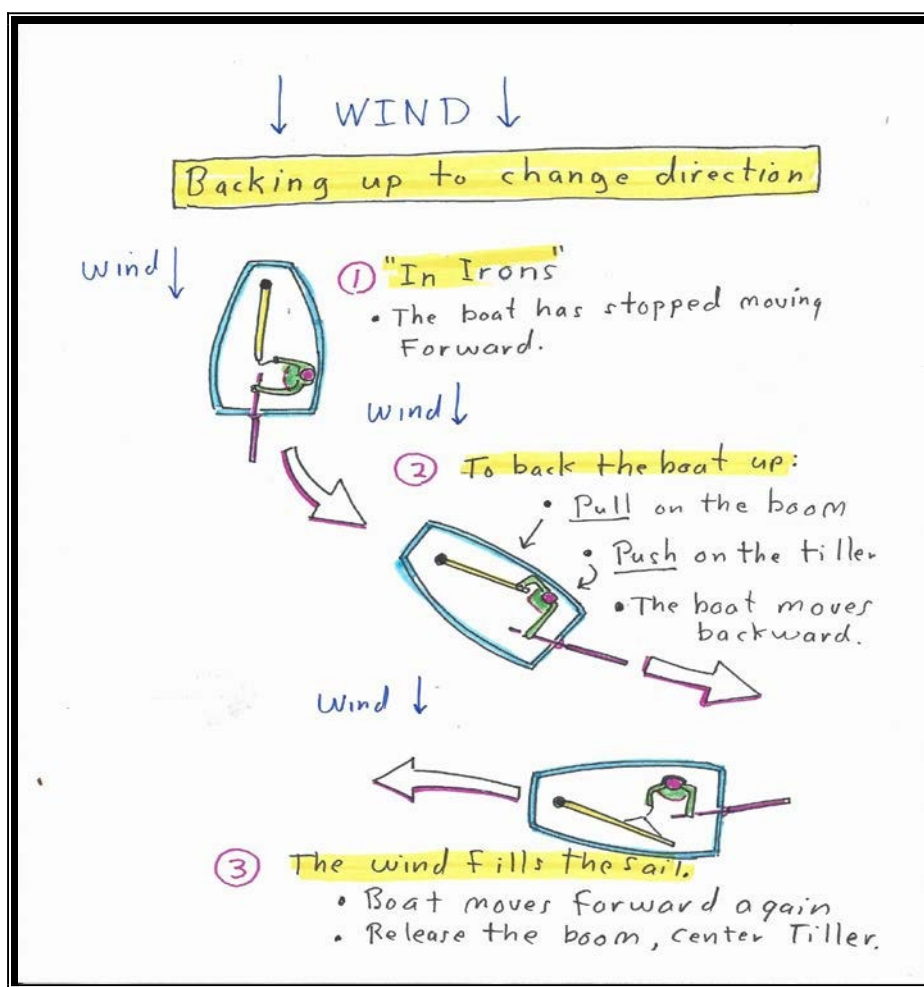 ↓ WIND ↓
Backing up to change direction
Wind ↓
① "In Irons"
• The boat has stopped moving
Forward.
Wind ↓
② To back the boat up:
• Pull on the boom
• Push on the tiller
• The boat moves
backward.
Wind ↓
③ The wind fills the sail.
• Boat moves forward again
• Release the boom, center Tiller.